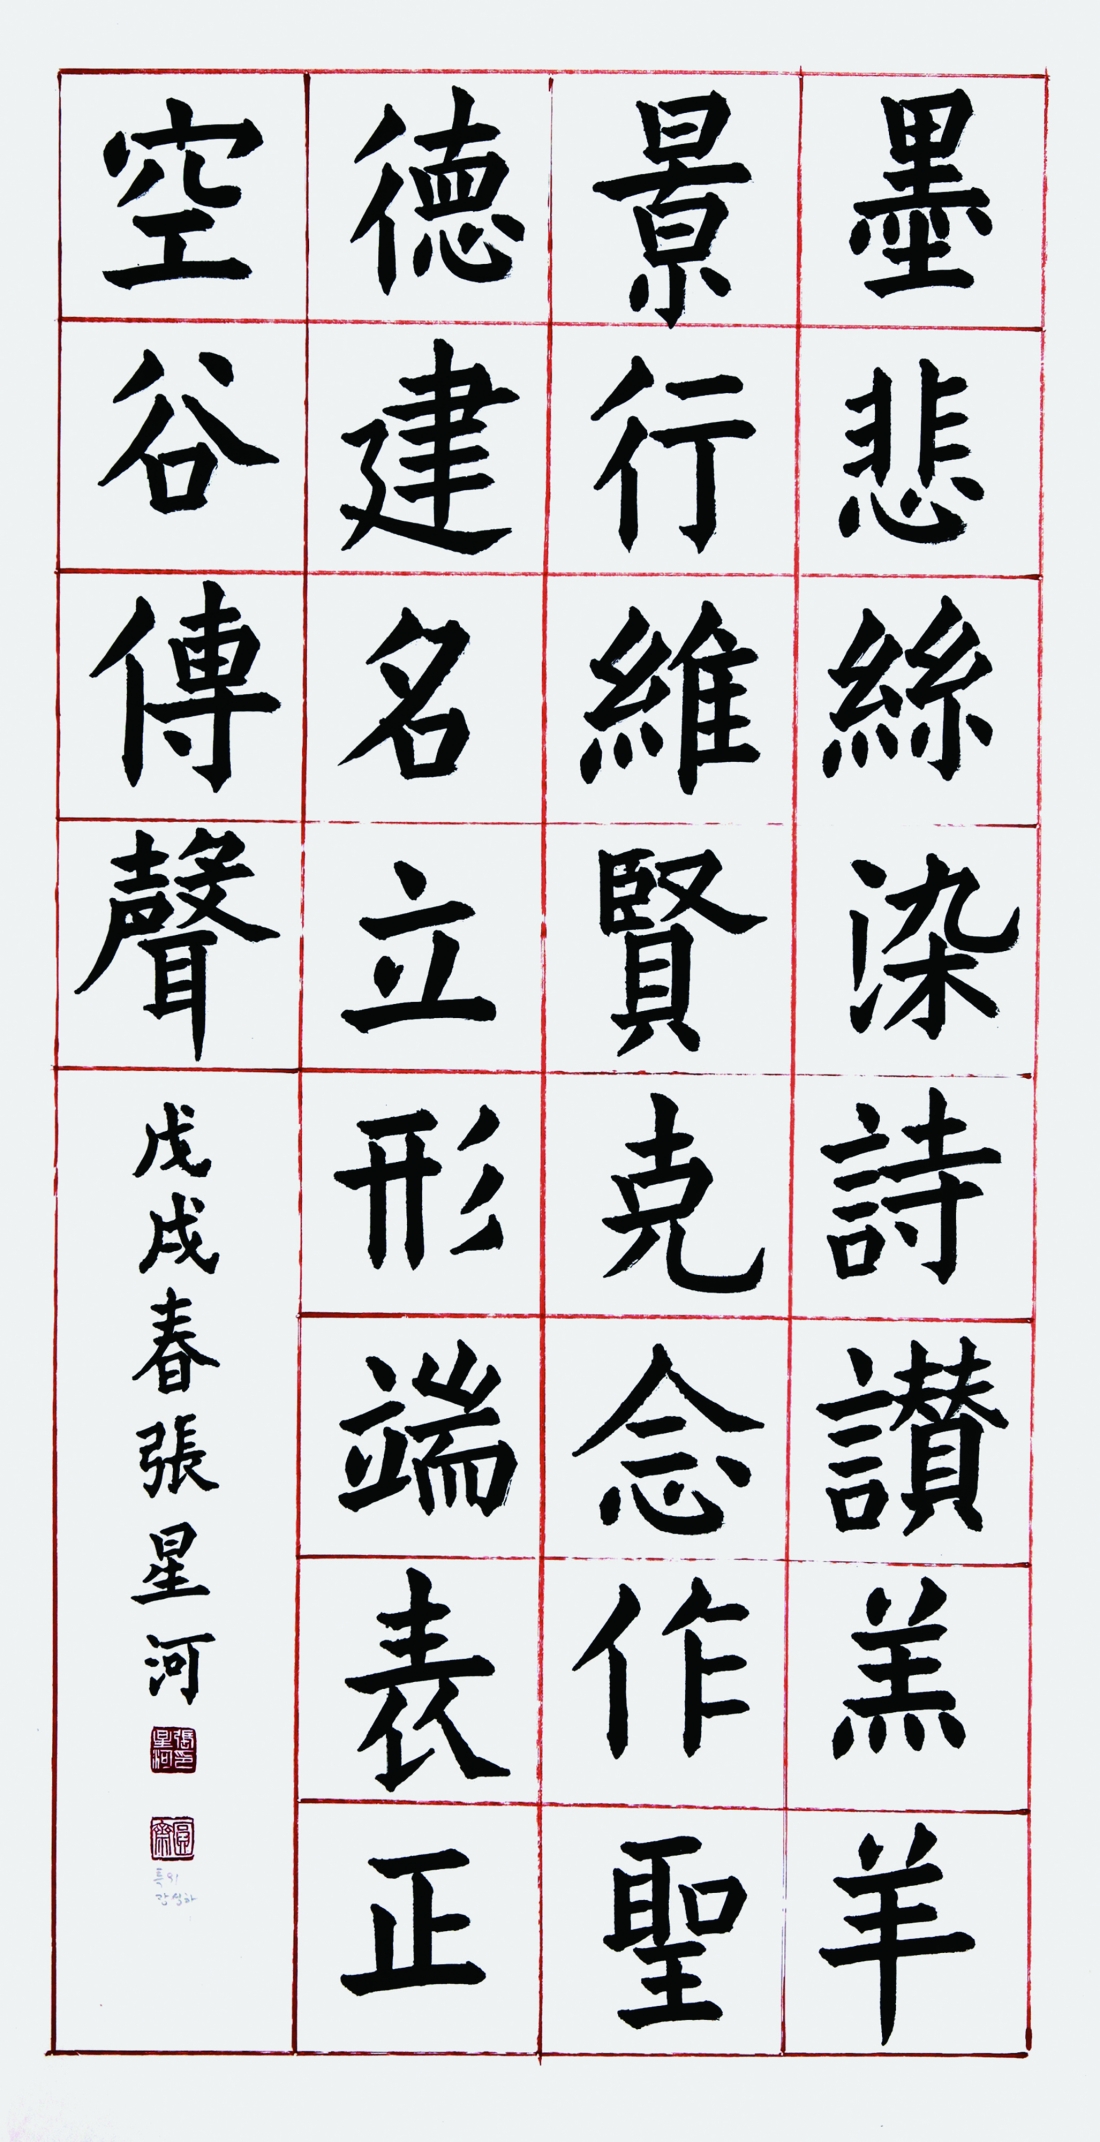 墨悲絲染詩讃羔羊
景行維賢克念作聖
德建名立形端表正
空谷傳聲
戊戌春張星河
張印星河